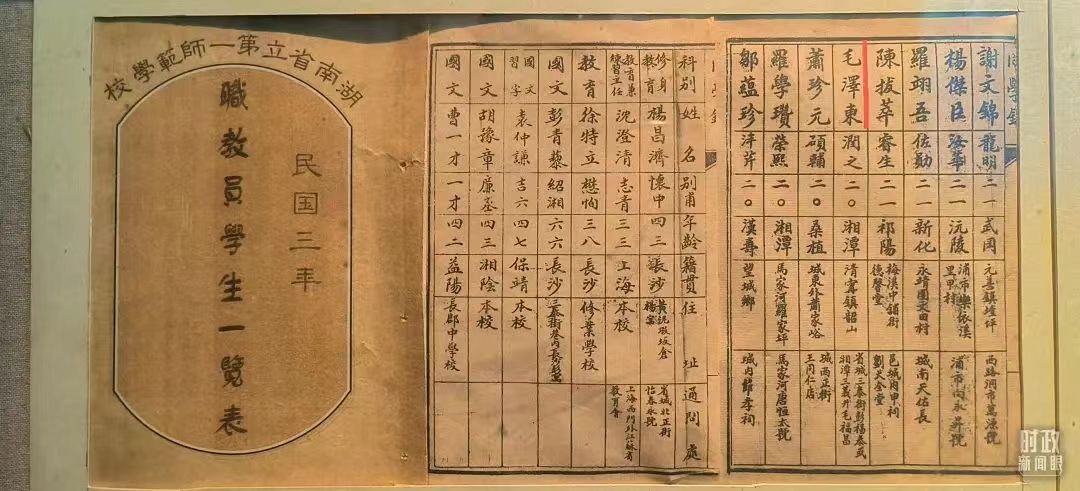 湖南省立第一師範學校
民国三年
職教員學生一覽表
科別 姓名 別甫 年齡 籍貫 住址 通問處
修身 教育 楊昌濟 懷中 四三 長沙 省城北正街怡春永號
教育兼練習主任 沈澄清 志青 三三 上海 本校 上海西門外江蘇省教育會
教育 徐特立 懋恂 三八 長沙 修業學校
國文 彭青藜 紹湘 六六 長沙
國文 習字 袁仲謙 吉六 四七 保靖 本校
國文 胡豫章 廉丞 四三 湘陰 本校
國文 曹一才 一才 四二 益陽 長郡中學校
謝文錦 龍明 二一 武岡 元善鎮 西路洞市萬源號
楊傑臣 汝華 二一 沅陵 浦市樂依溪里甲村 浦市向永昇號
羅翊吾 佐勛 二一 新化 永靖團 城南天佑長
陳拔萃 睿生 二一 祁陽 梅溪中鋪街德馨堂 邑城内申祠劉大全堂
毛澤東 潤之 二〇 湘潭 清富鎮韶山 省城三泰街彭楊泰或湘潭三義井毛福昌
蕭珍元 碩輔 二〇 桑植 城東外蕭家峪 城西正街王同仁店
羅學瓚 榮熙 二〇 湘潭 馬家河羅家坪 馬家河唐恒太號
鄒蘊珍 泮芹 二〇 漢壽 望城鄉 城内節孝祠
时政
新闻眼